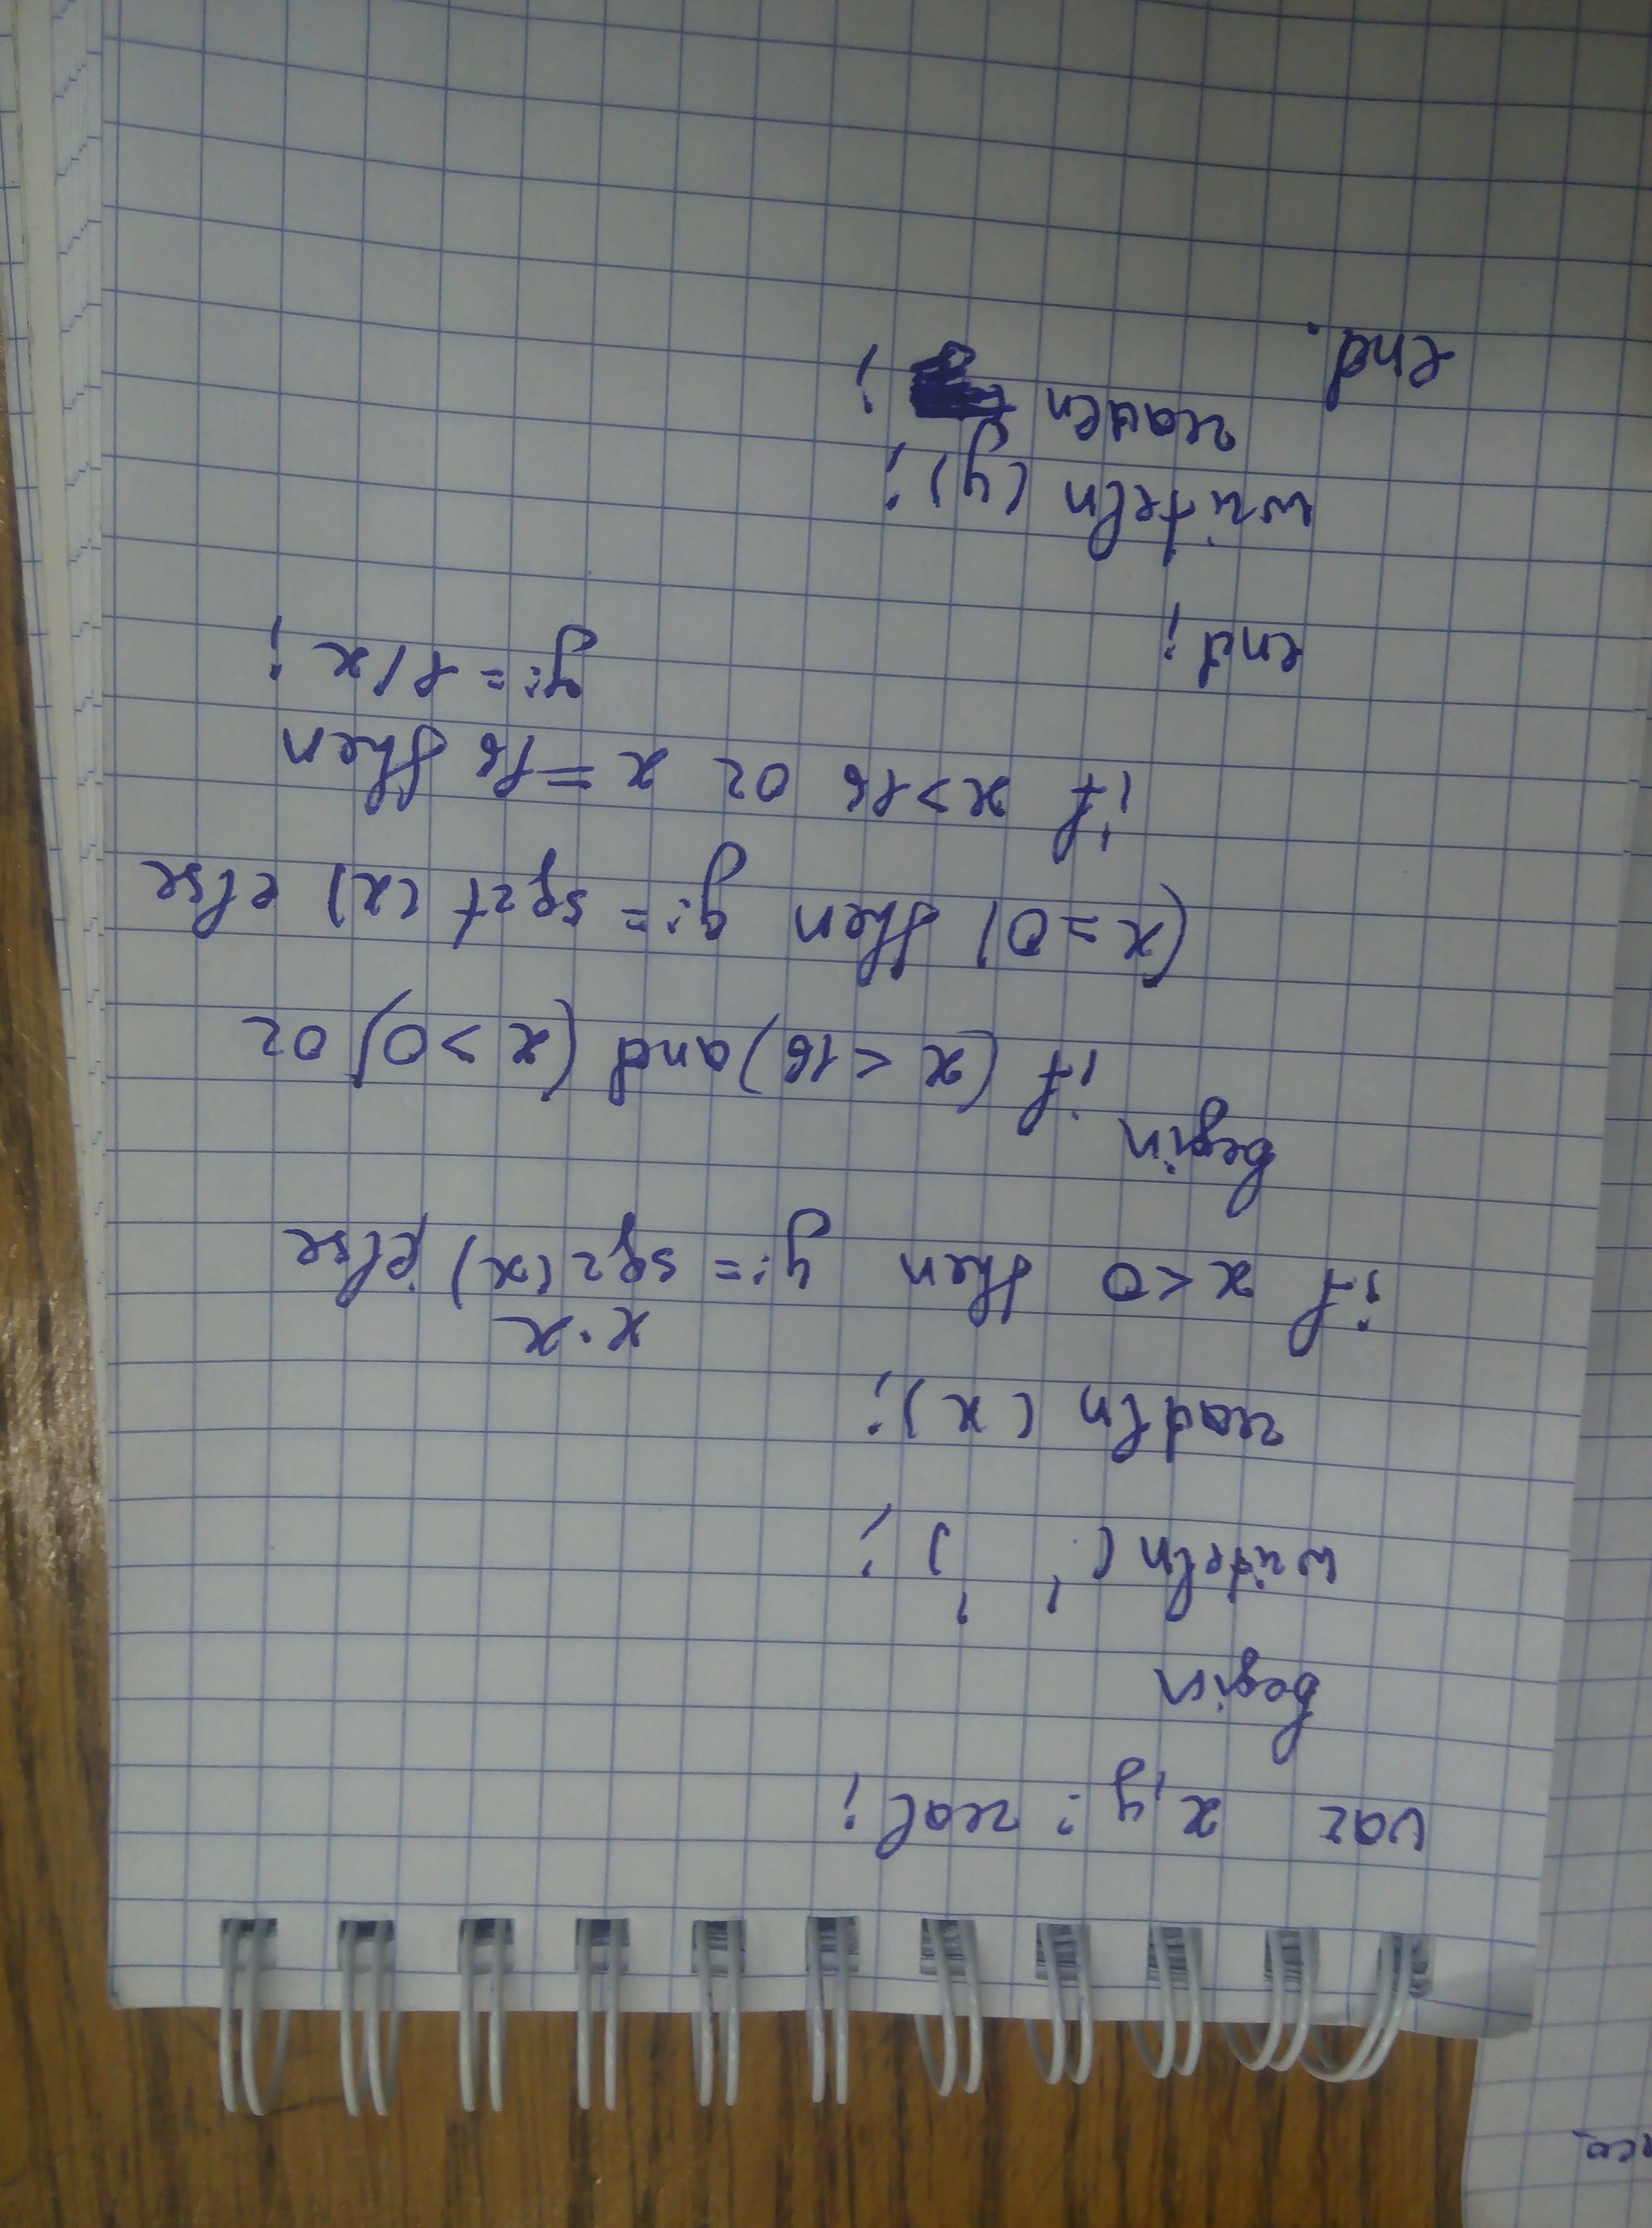 var x,y: real;
begin
writeln(' ');
readln (x);
x·x
if x<0 then y:= sqr(x) else
begin
if (x < 16) and (x > 0) or
(x=0) then y:= sqrt (x) else
if x>16 or x=16 then
y:= 1/x;
end;
writeln (y);
readln ;
end.